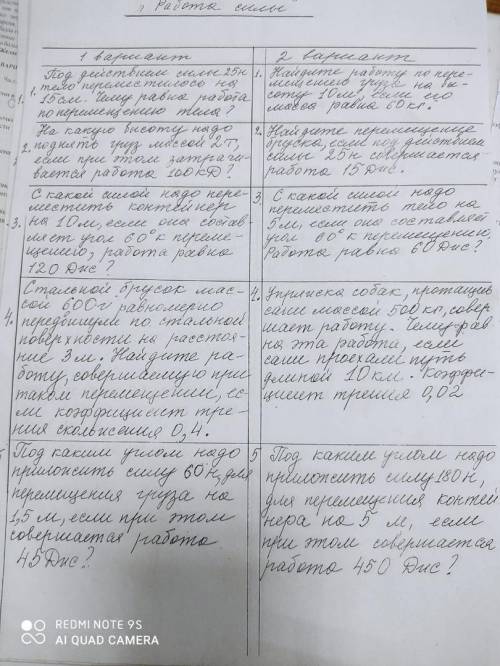 "Работа силы"
1 вариант
1. Под действием силы 25н
тело переместилось на
15см. Чему равна работа
по перемещению тела?
На какую высоту надо
2. поднять груз массой 2т,
если при этом затрачи-
вается работа 100кД?
С какой силой надо пере-
местить контейнер
3. на 10м, если она состав-
ляет угол 60° к переме-
щению, работа равна
120 Дж?
Стальной брусок мас-
сой 600г равномерно
4. передвинули по стальной
поверхности на расстоя-
ние 3м. Найдите ра-
боту, совершаемую при
таком перемещении, ес-
ли коэффициент тре-
ния скольжения 0,4.
Под каким углом надо
приложить силу 60н, для
перемещения груза на
1,5м, если при этом
совершается работа
45Дж?
2 вариант
1. Найдите работу по пере-
мещению груза на вы-
соту 10м, если его
масса равна 60кг.
2. Найдите перемещение
бруска, если под действием
силы 25н совершается
работа 15Дж.
3. С какой силой надо
переместить тело на
5м, если она составляет
угол 60° к перемещению.
Работа равна 60Дж?
4. Упряжка собак, протащив
сани массой 500кг, совер-
шает работу. Чему рав-
на эта работа, если
сани проехали путь
длиной 10км. Коэффи-
циент трения 0,02
5 Под каким углом надо
приложить силу 180н,
для перемещения контей
нера на 5м, если
при этом совершается
работа 450 Дж?
REDMI NOTE 9S
AI QUAD CAMERA